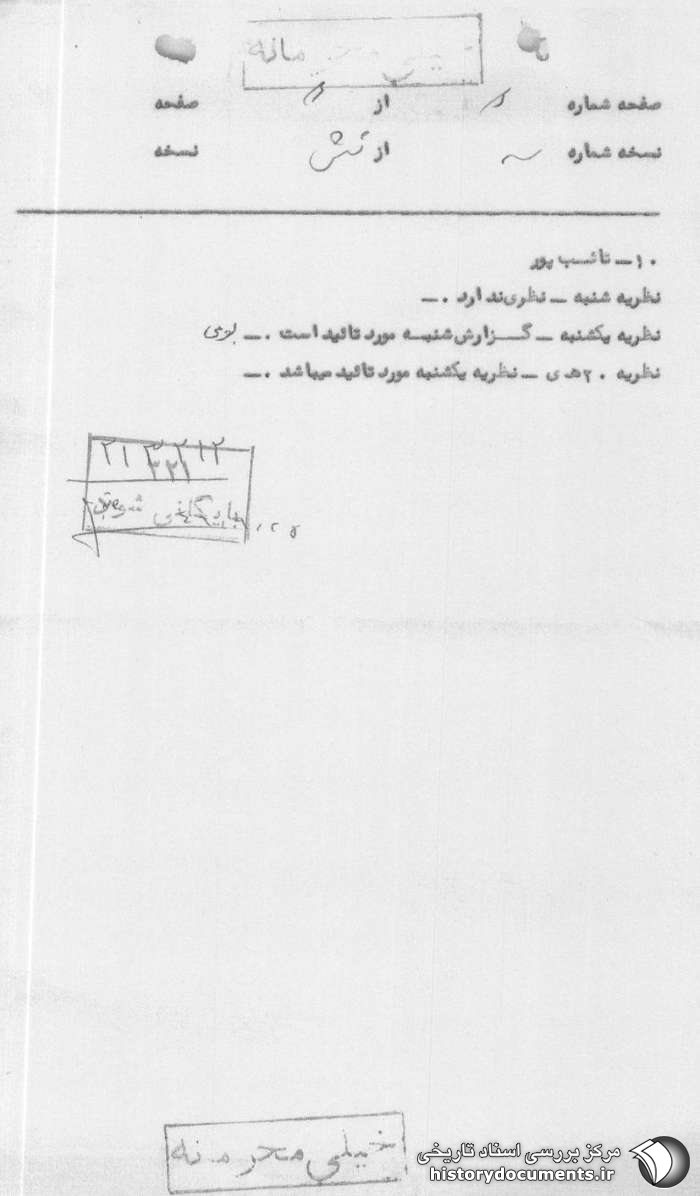 خیلی محرمانه
صفحه شماره از صفحه
نسخه شماره از شش نسخه
۱۰ـ تائب پور
نظریه شنبه ـ نظری ندارد .ـ
نظریه یکشنبه ـ گزارش شنبه مورد تائید است .ـ
نظریه ۲۰ ه‍ ی ـ نظریه یکشنبه مورد تائید میباشد .ـ
بایگانی شود
خیلی محرمانه
مرکز بررسی اسناد تاریخی
historydocuments.ir